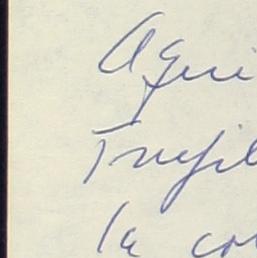 Aqui
Trujil
la co